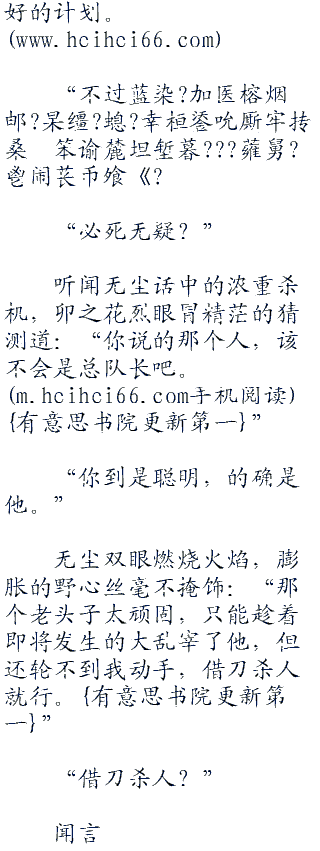 好的计划。
(www.hcihci66.com)
“不过蓝染?加医榕烟
邮?杲缰?螅?幸桓鍌吮厮牢抟
桑　笨谕麓坦堑暮???蕹舅?
鬯闹苌币飧《?
“必死无疑？”
听闻无尘话中的浓重杀
机，卯之花烈眼冒精茫的猜
测道：“你说的那个人，该
不会是总队长吧。
(m.hcihci66.com手机阅读)
{有意思书院更新第一}”
“你到是聪明，的确是
他。”
无尘双眼燃烧火焰，膨
胀的野心丝毫不掩饰：“那
个老头子太顽固，只能趁着
即将发生的大乱宰了他，但
还轮不到我动手，借刀杀人
就行。{有意思书院更新第
一}”
“借刀杀人？”
闻言